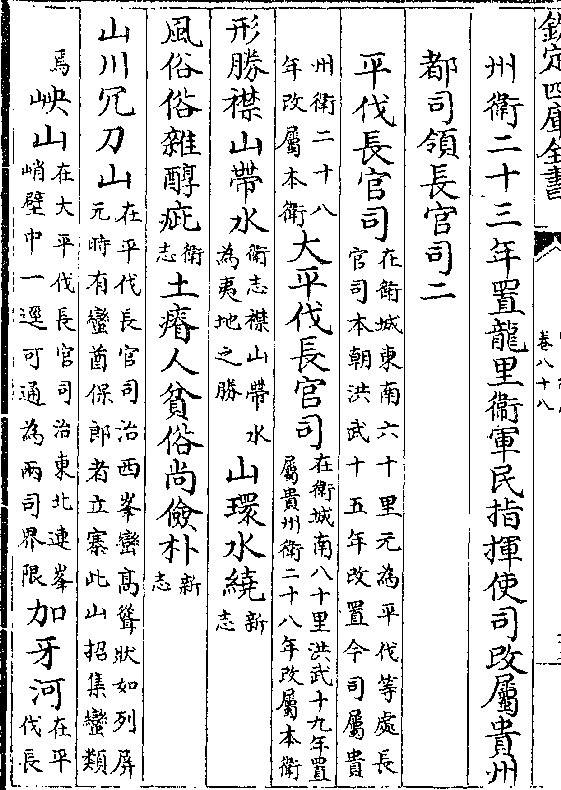 欽定四庫全書
卷八十八
州衛二十三年置龍里衛軍民指揮使司改屬貴州
都司領長官司二
平伐長官司在衛城東南六十里元為平伐等處長
官司本朝洪武十五年改置今司屬貴
州衛二十八
年改屬本衛大平伐長官司在衛城南八十里洪武十九年置
屬貴州衛二十八年改屬本衛
形勝襟山帶水衛志襟山帶水
為夷地之勝山環水繞新
志
風俗俗雜醇疵衛
志土瘠人貧俗尚儉朴新
志
山川冗刀山在平代長官司治西峯巒高聳狀如列屏
元時有蠻酋保郎者立寨此山招集蠻類
焉㟅山在大平伐長官司治東北連峯
峭壁中一逕可通為兩司界限加牙河在平
伐長